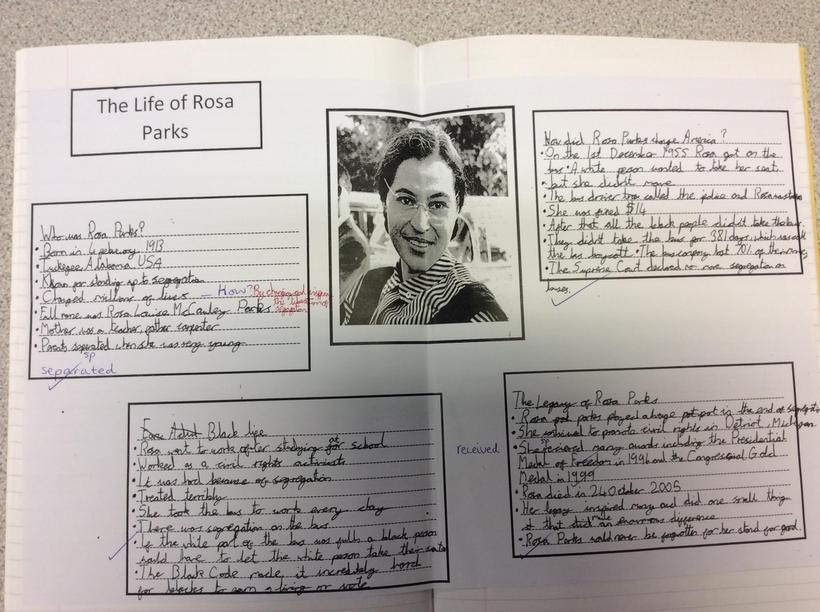 The Life of Rosa
Parks
Who was Rosa Parks?
• Born in 4 february 1913
• Tuskegee Alabama USA
• Known for standing up to segregation
• Changed millions of lives — How?
• Full name was Rosa Louise McCauley Parks
• Mother was a teacher, father carpenter
• Parents separated when she was very young
sp
separated
How did Rosa Parks change America?
• On the 1st December 1955 Rosa got on the
bus • A white person wanted to take her seat
but she didn't move
• The bus driver called the police and Rosa
• She was fined $14
• After that all the black people didn't take the bus
• They didn't take the bus for 381 days, which was
the bus boycott • The bus company lost 70% of their money
• The Supreme Court declared no more segregation on
buses.
Black life
• Rosa went to work after studying at school
• Worked as a civil rights activist
• It was hard because of segregation
• Treated terribly
• She took the bus to work every day
• There was segregation on the bus
• If the white part of the bus was full a black person
would have to let the white person take their seats
• The Black Code made it incredibly hard
for blacks to earn a living or vote
received
The Legacy of Rosa Parks
• Rosa parks played a huge part in the end of segregation
• She continued to promote civil rights in Detriot, Michigan.
sp
• She many awards including the Presidential
Medal of Freedom in 1996 and the Congressional Gold
Medal in 1999
• Rosa died in 24 October 2005
• Her legacy inspired many and did one small thing
made
that an enormous difference
• Rosa Parks never be forgotten for her stand for good.